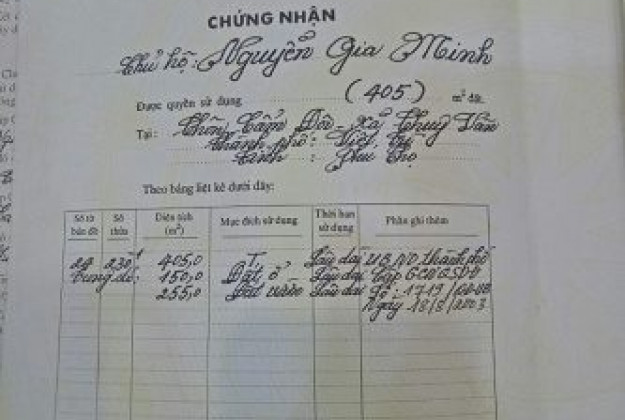 CHỨNG NHẬN
Chủ hộ: Nguyễn Gia Minh
Được quyền sử dụng (405) m² đất
Tại: Thôn Cẩm Đội - xã Thụy Vân
Thành phố: Việt Trì
Tỉnh: Phú Thọ
Theo bảng liệt kê dưới đây:
Số tờ bản đồ Số thửa Diện tích (m²) Mục đích sử dụng Thời hạn sử dụng Phần ghi thêm
24 230 405,0 T Lâu dài UBND thành phố
Trong đó: 150,0 Đất ở Lâu dài Cấp GCNQSDĐ
255,0 Đất vườn Lâu dài Số: 1719
Ngày 18/8/2003